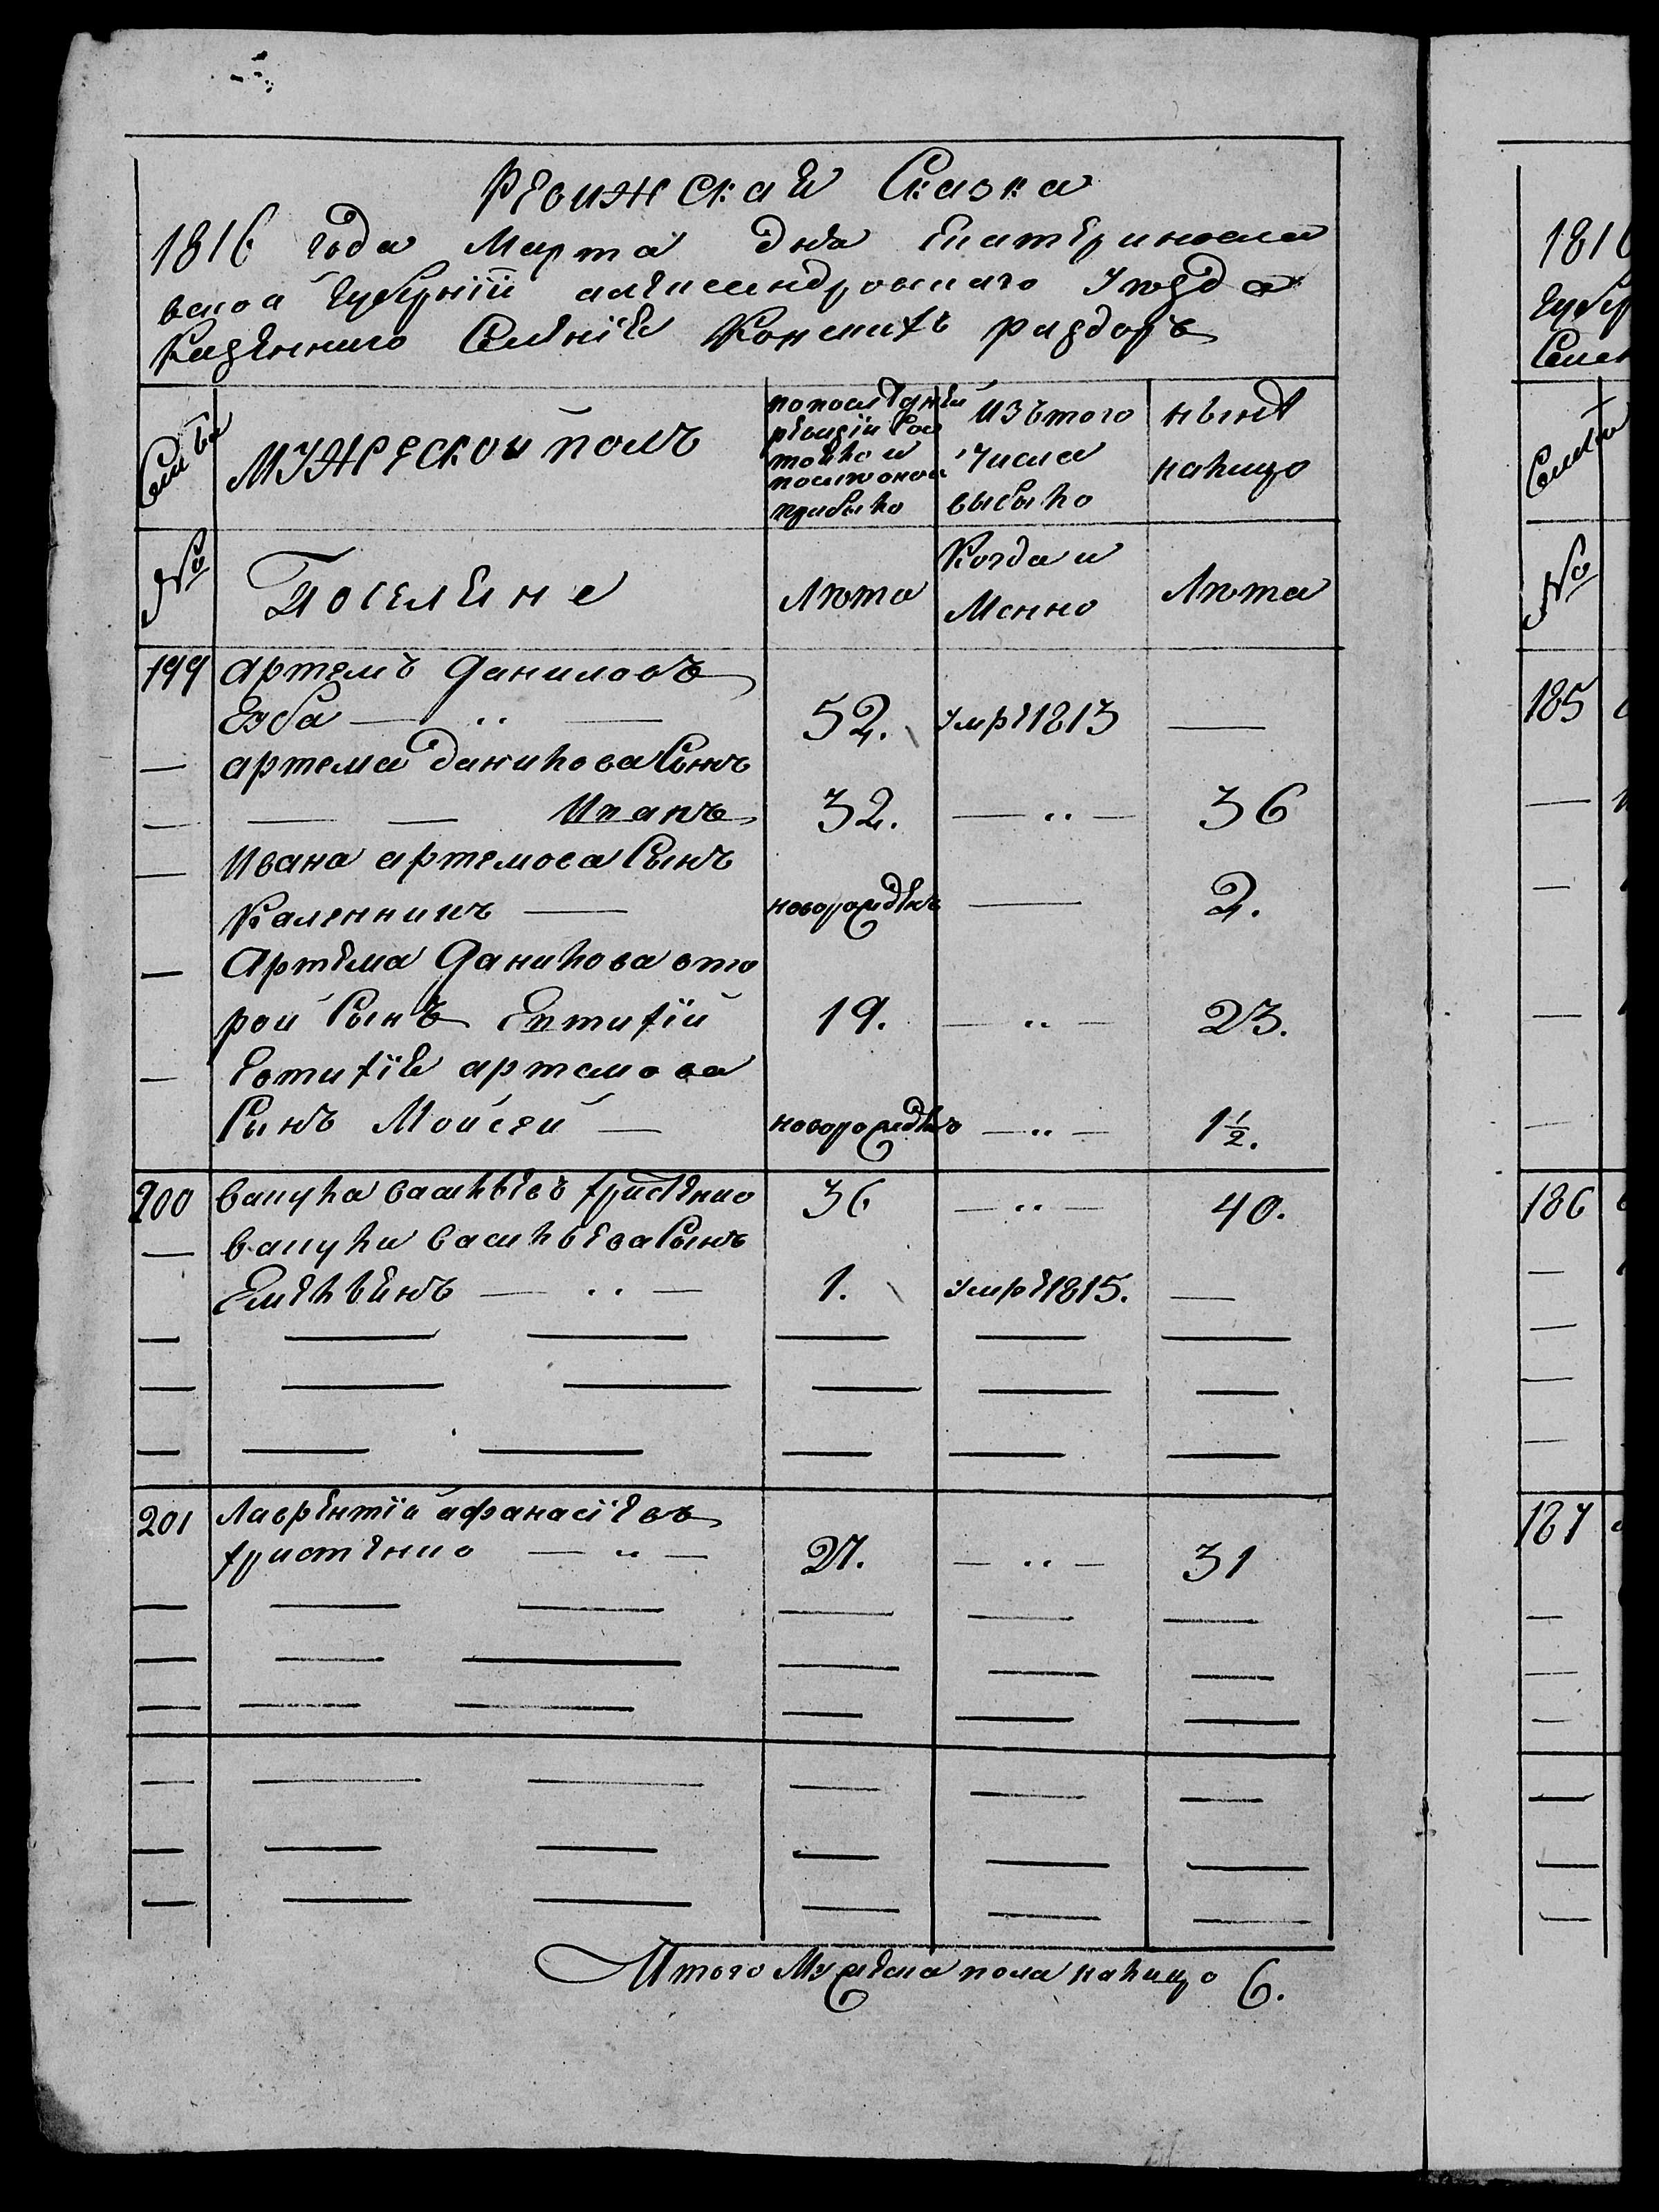 Ревижская Сказка
1816 года Марта дня Екатериносла
вской Губерніи александровскаго Уезда
Казенного Селеніе Конскихъ раздоръ
Семьи
МУЖЕСКОЙ полъ
попоследней
ревизіи Сос
тояло и
после оной
прибыло
Изътого
Числа
выбыло
ныне
налицо
№
Поселяне
Лѣта
Когда и
Менно
Лѣта
199 Артемъ Даниловъ
Езба — ·· — 52. умре 1813 —
— артема Данилова Сынъ
— — — Иванъ 32. — ·· — 36
— Ивана артемова Сынъ
Каленникъ — новорожденъ — 2.
— Артема Данилова вто
рой Сынъ Евтихій 19. — ·· — 23.
— Евтихіе артемова
Сынъ Мойсей — новорожденъ — ·· — 1½.
200 Вакула васильевъ христенко 36 — ·· — 40.
— Вакулы васильева Сынъ
Емельянъ — ·· — 1. умре 1815. —
201 Лаврентій афанасіевъ
христенко — ·· — 27. — ·· — 31
Итого Мужеска пола налицо 6.
1816
Губер
Селен
Семьи
№
185
186
187